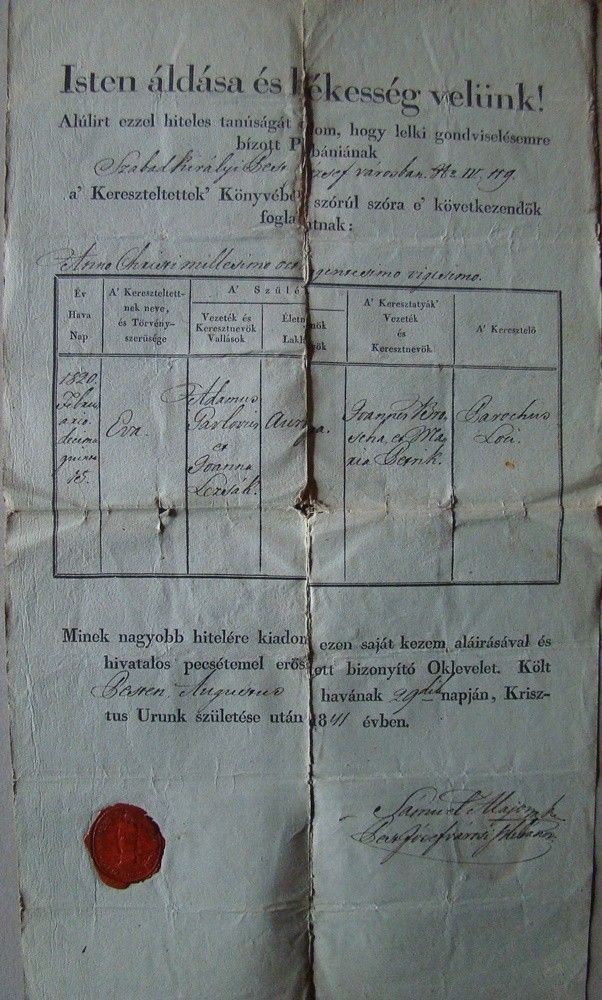 Isten áldása és békesség velünk!
Alúlirt ezzel hiteles tanúságát adom, hogy lelki gondviselésemre
bízott Plébániának
Szabad királyi Pest József városban. IV. 119.
a' Kereszteltettek' Könyvében szórúl szóra e' következendők
foglaltatnak:
Anno Christi millesimo octingentesimo vigesimo.
Év
Hava
Nap
A' Kereszteltett-
nek neve,
és Törvény-
szerűsége
A' Szülék
Vezeték és
Keresztnevök
Vallások
Életnemök
Lakhelyök
A' Keresztatyák'
Vezeték
és
Keresztnevök
A' Keresztelő
1820.
Februario
decima
quinta
15.
Eva.
Adamus
Pavlovics
et
Joanna
Lezsák.
Joannes
et Maria
Parochus
Loci.
Minek nagyobb hitelére kiadom ezen saját kezem aláirásával és
hivatalos pecsétemel erősített bizonyító Oklevelet. Költ
Pesten Augustus havának 29dik napján, Krisz-
tus Urunk születése után 1841 évben.
Samuel
Pest Józsefvárosi Plebános